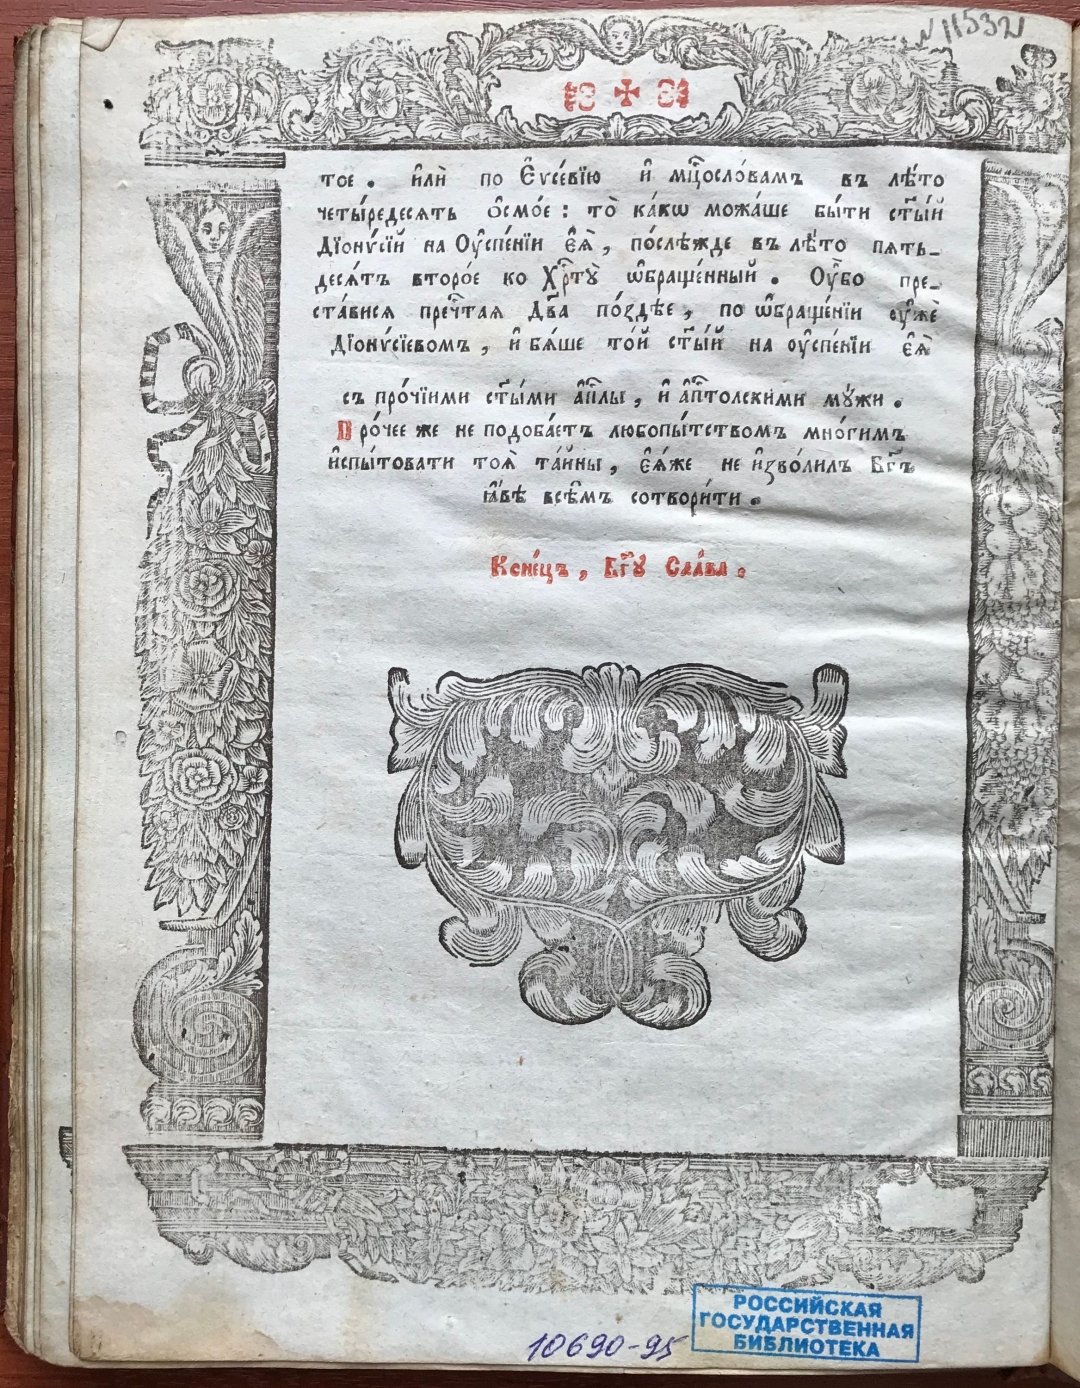 № 11532
тое . и҆лѝ по Є҆ѵсе́вїю и҆ мцⷭ҇осло́вамъ въ лѣ́то
четы́редесять ѻ҆смо́е : то̀ ка́кѡ можа́ше бы́ти ст҃ы́й
Дїонѵ́сїй на Оу҆спе́нїи є҆ѧ̀ , после́жде въ лѣ́то пять-
деся́тъ второ́е ко Хрⷭ҇тꙋ̀ ѡ҆браще́нный . Оу҆̀бо пре-
ста́вися преч҃тая Дв҃а по́здѣе , по ѡ҆браще́нїи оу҆жѐ
Дїонѵ́сїевомъ , и҆ бя́ше то́й ст҃ы́й на оу҆спе́нїи є҆ѧ̀
съ про́чїими ст҃ы́ми а҆пⷭ҇лы , и҆ а҆пⷭ҇толскими мꙋ́жи .
Про́чее же не подоба́етъ любопы́тствомъ мно́гимъ
и҆спы́товати тоѧ̀ та́йны , є҆ѧ́же не и҆зво́лилъ Бг҃ъ
ꙗ҆́вѣ всѣ̑мъ сотвори́ти .
Коне́цъ , Бг҃ꙋ Сла́ва .
10690-95
РОССИЙСКАЯ
ГОСУДАРСТВЕННАЯ
БИБЛИОТЕКА